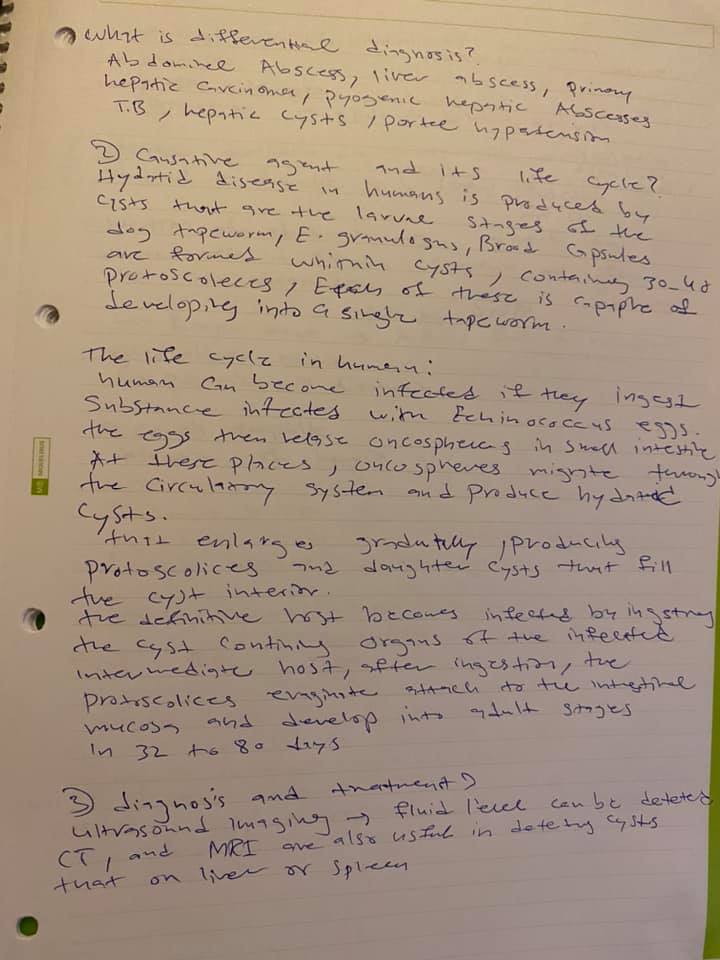 What is differential diagnosis?
Abdominal Abscess, liver abscess, primary
hepatic Carcinoma, pyogenic hepatic Abscesses
T.B, hepatic cysts, portee hypatension
2) Causative agent and its life cycle?
Hydatid disease in humans is produced by
cists that are the larval stages of the
dog tapeworm, E. granulosus, Brood Capsules
are formed whithin cysts, containing 30-40
protoscoleces, Each of these is capaple of
developing into a single tapeworm.
The life cycle in human:
human can become infected if they ingest
Substance infected with Echinococcus eggs.
the eggs then relase oncospheres in small intestine
At these places, oncospheres migrate through
the circulatory system and produce hydatid
Cysts.
that enlarges gradutelly, producing
protoscolices and daughter cysts that fill
the cyst interior.
the definitive host becomes infected by ingsting
the cyst contining organs of the infected
intermediate host, after ingestion, the
protoscolices evaginate attach to the intestinal
mucosa and develop into adult stages
in 32 to 80 days
3) diagnosis and treatment?
ultrasound imaging → fluid level can be deteted
CT, and MRI are also useful in deteting cysts
that on liver or spleen